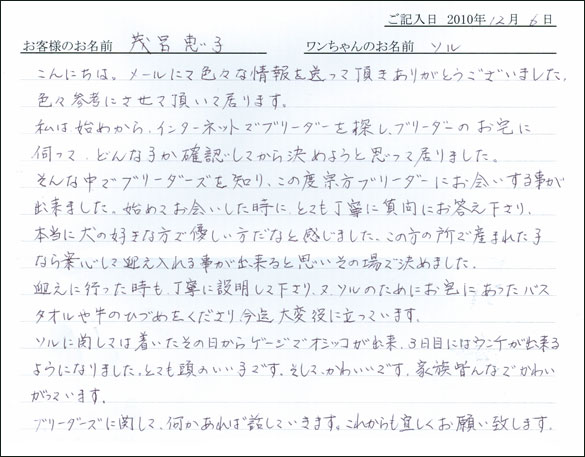 ご記入日 2010年12月6日
お客様のお名前 茂呂恵子 ワンちゃんのお名前 ソル
こんにちは。メールにて色々な情報を送って頂きありがとうございました。
色々参考にさせて頂いて居ります。
私は始めから、インターネットでブリーダーを探し、ブリーダーのお宅に
伺って、どんな子か確認してから決めようと思って居りました。
そんな中でブリーダーズを知り、この度宗方ブリーダーにお会いする事が
出来ました。始めてお会いした時に、とても丁寧に質問にお答え下さり、
本当に犬の好きな方で優しい方だなと感じました。この方の所で産まれた子
なら安心して迎え入れる事が出来ると思いその場で決めました。
迎えに行った時も、丁寧に説明して下さり、又、ソルのためにお宅にあったバス
タオルや牛のひづめをくださり、今迄大変役に立っています。
ソルに関しては着いたその日からゲージでオシッコが出来、3日目にはウンチが出来る
ようになりました。とても頭のいい子です。そして、かわいいです。家族皆んなでかわい
がっています。
ブリーダーズに関して、何かあれば話していきます。これからも宜しくお願い致します。